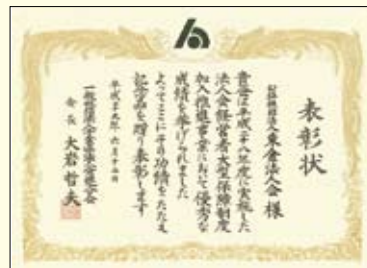 表彰状
公益社団法人東倉法人会 様
貴会は平成二十八年度に実施した
法人会経営者大型保障制度
加入推進事業において優秀な
成績を挙げられました
よってここにその功績をたたえ
記念品を贈り表彰します
平成二十九年六月十五日
会長 大岩哲夫